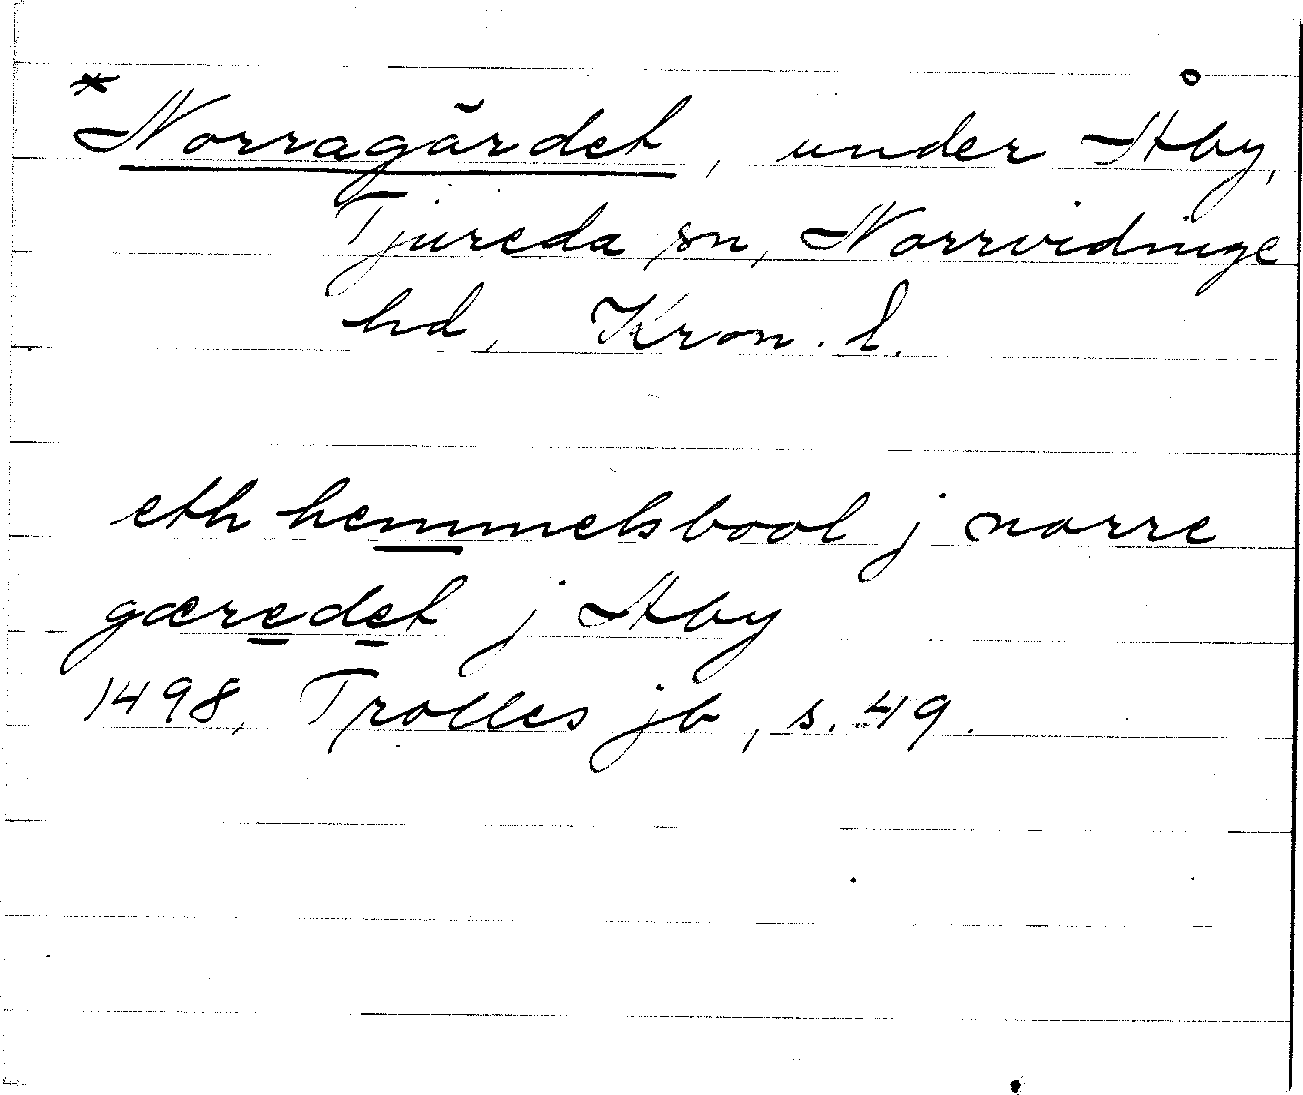 *Norragärdet, under Åby,
Tjureda sn, Norrvidinge
hd, Kron. l.
eth hemmelsbool j norre
gæredet j Aby
1498, Trolles jb, s. 49.